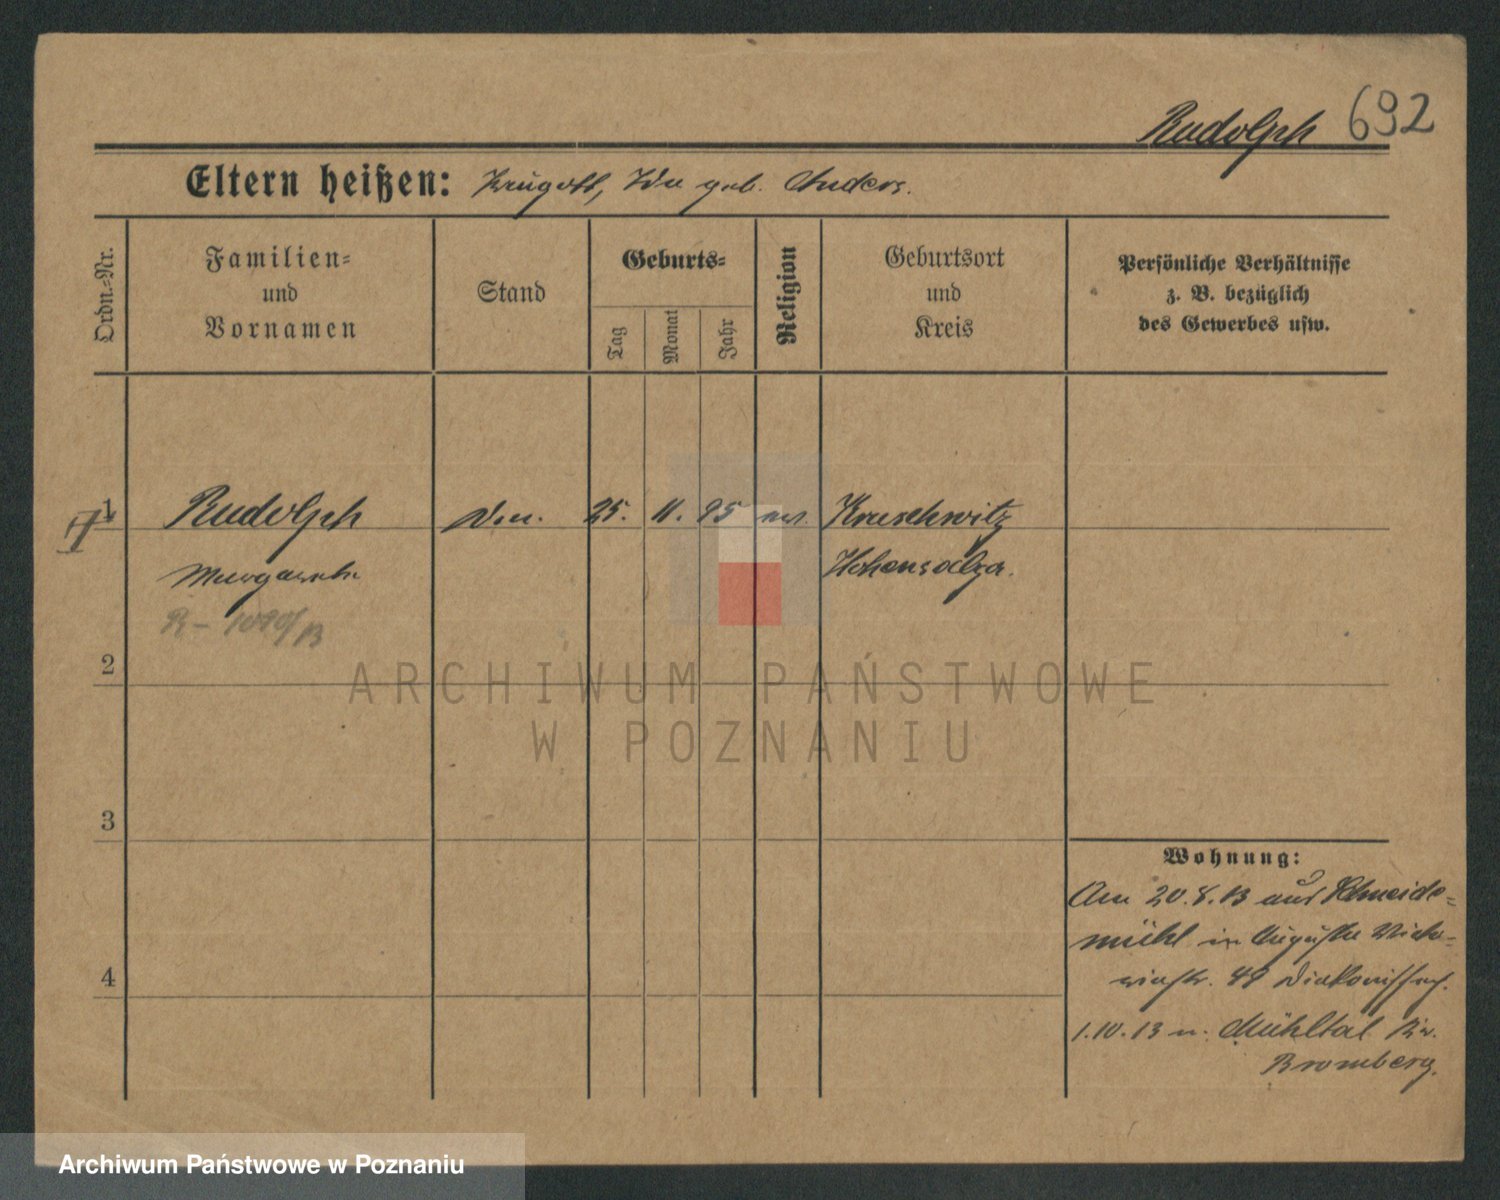 Rudolph 692
Eltern heißen: Krugott, Ida geb. Anders.
Ordn.-Nr.
Familien-
und
Vornamen
Stand
Geburts-
Tag
Monat
Jahr
Religion
Geburtsort
und
Kreis
Persönliche Verhältnisse
z. B. bezüglich
des Gewerbes usw.
1 Rudolph 25. 11. 95 Kruschwitz
Margarete Hohensalza.
2
3
4
Wohnung:
Am 20.8.13 aus Schneide-
mühl in Auguste Vikto-
riastr. 49
1.10.13 n. Mühltal Kr.
Bromberg.
ARCHIWUM PAŃSTWOWE
W POZNANIU
Archiwum Państwowe w Poznaniu